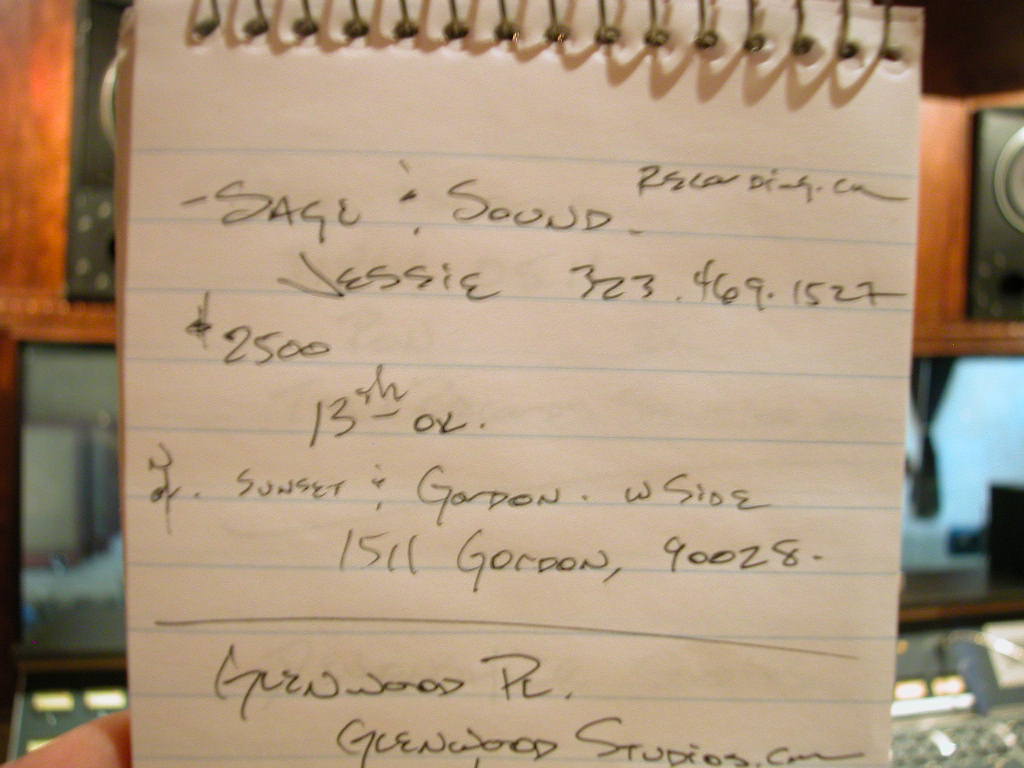 - SAGE & SOUND. RECORDING.com
JESSIE 323.469.1527
$2500
13th OK.
N of. SUNSET & GORDON. W SIDE
1511 GORDON, 90028.
GLENWOOD PL.
GLENWOOD STUDIOS.com